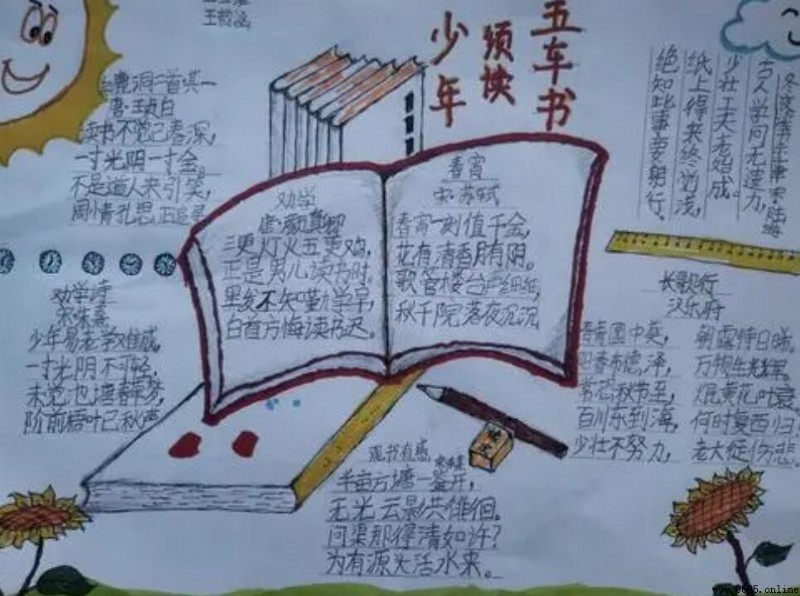 少年
须读
五车书
冬夜读书示聿 宋 陆游
古人学问无遗力,
少壮工夫老始成。
纸上得来终觉浅,
绝知此事要躬行。
白鹿洞二首其一
唐·王贞白
读书不觉已春深,
一寸光阴一寸金。
不是道人来引笑,
周情孔思正追寻
劝学
唐·颜真卿
三更灯火五更鸡,
正是男儿读书时。
黑发不知勤学早,
白首方悔读书迟。
春宵
宋·苏轼
春宵一刻值千金,
花有清香月有阴。
歌管楼台声细细,
秋千院落夜沉沉
劝学诗
宋·朱熹
少年易老学难成,
一寸光阴不可轻,
未觉池塘春草梦,
阶前梧叶已秋声
长歌行
汉乐府
青青园中葵, 朝露待日晞。
阳春布德泽, 万物生光辉。
常恐秋节至, 焜黄花叶衰。
百川东到海, 何时复西归
少壮不努力, 老大徒伤悲。
观书有感 宋朱熹
半亩方塘一鉴开,
无光云影共徘徊。
问渠那得清如许?
为有源头活水来。